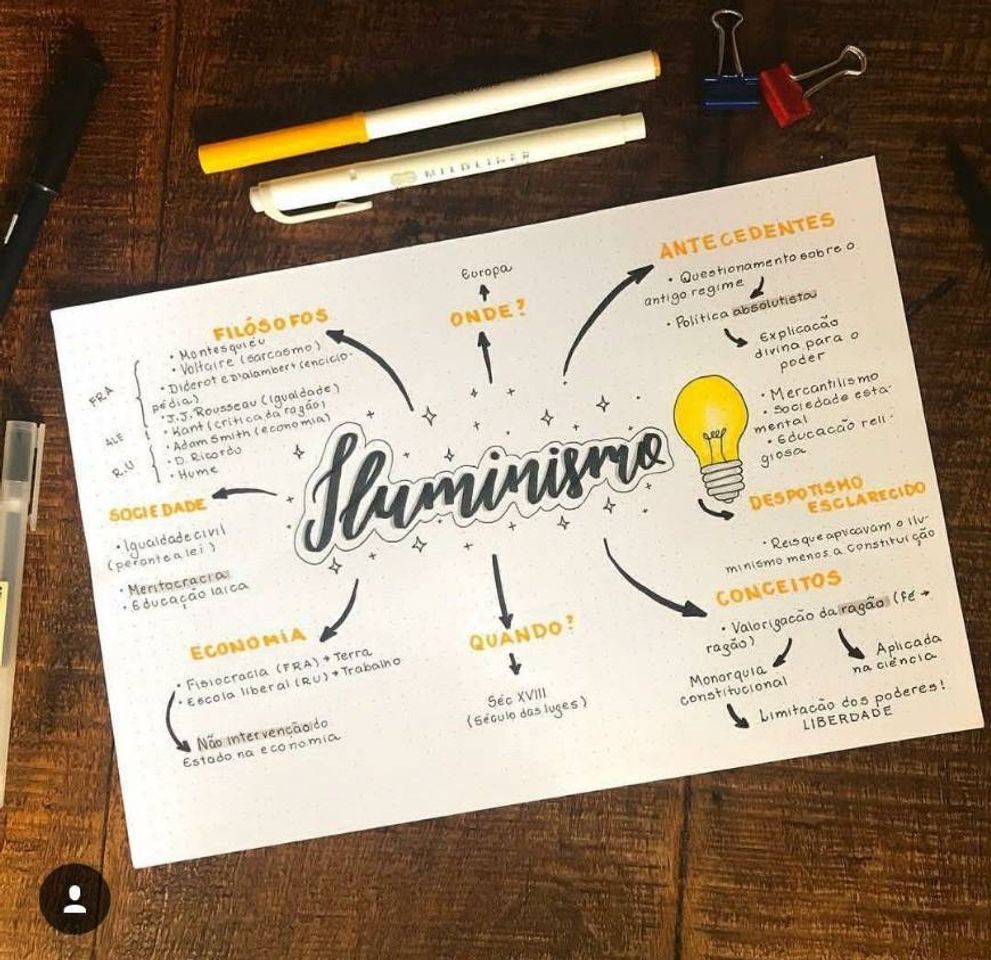 MILDLINER
ANTECEDENTES
• Questionamento sobre o
antigo regime
• Política absolutista
Explicacão
divina para o
poder
• Mercantilismo
• Sociedade esta-
mental
• Educacão reli-
giosa
Europa
ONDE?
FILÓSOFOS
FRA
• Montesquieu
• Voltaire (sarcasmo)
• Diderot e D'alambert (enciclo-
pédia)
• J.J. Rousseau (igualdade)
ALE
• Kant (crítica da razão)
R.U
• Adam Smith (economia)
• D. Ricardo
• Hume
Iluminismo
SOCIEDADE
• Igualdade civil
(perante a lei)
• Meritocracia
• Educação laica
DESPOTISMO
ESCLARECIDO
• Reis que aplicavam o ilu-
minismo menos a constituição
ECONOMIA
• Fisiocracia (FRA) → Terra
• Escola liberal (RU) → Trabalho
Não intervenção do
Estado na economia
QUANDO?
Séc XVIII
(Século das luzes)
CONCEITOS
• Valorizacão da razão (Fé →
razão)
Monarquia
constitucional
Aplicada
na ciência
Limitacão dos poderes!
LIBERDADE